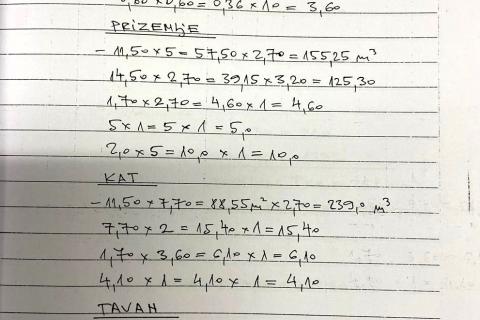 0,60 x 0,60 = 0,36 x 10 = 3,60
PRIZEMLJE
- 11,50 x 5 = 57,50 x 2,70 = 155,25 m³
14,50 x 2,70 = 39,15 x 3,20 = 125,30
1,70 x 2,70 = 4,60 x 1 = 4,60
5 x 1 = 5 x 1 = 5,0
2,0 x 5 = 10,0 x 1 = 10,0
KAT
- 11,50 x 7,70 = 88,55 m² x 2,70 = 239,0 m³
7,70 x 2 = 15,40 x 1 = 15,40
1,70 x 3,60 = 6,10 x 1 = 6,10
4,10 x 1 = 4,10 x 1 = 4,10
TAVAN